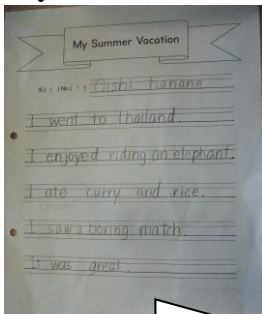 My Summer Vacation
6( )No( ) Oishi hanane
I went to Thailand.
I enjoyed riding an elephant.
I ate curry and rice.
I saw a boxing match.
It was great.